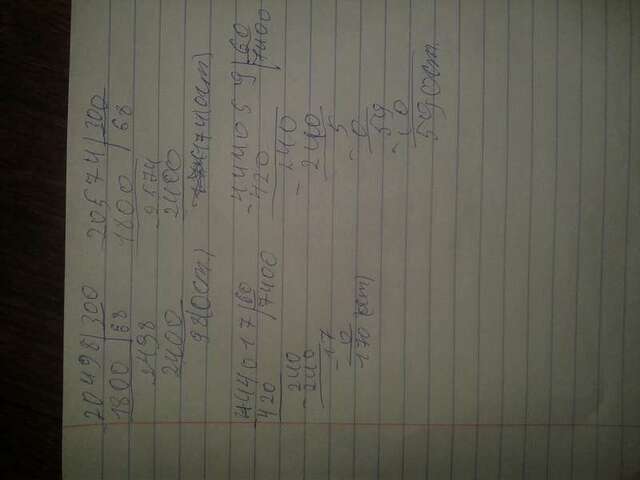 20498 | 300
1800 | 68
2498
2400
98(ост)
20574 | 300
1800 | 68
2574
2400
174(ост)
444017 | 60
420 | 7400
240
- 240
17
- 0
17(ост)
- 444059 | 60
420 | 7400
240
- 240
5
- 0
59
- 0
59 ост.